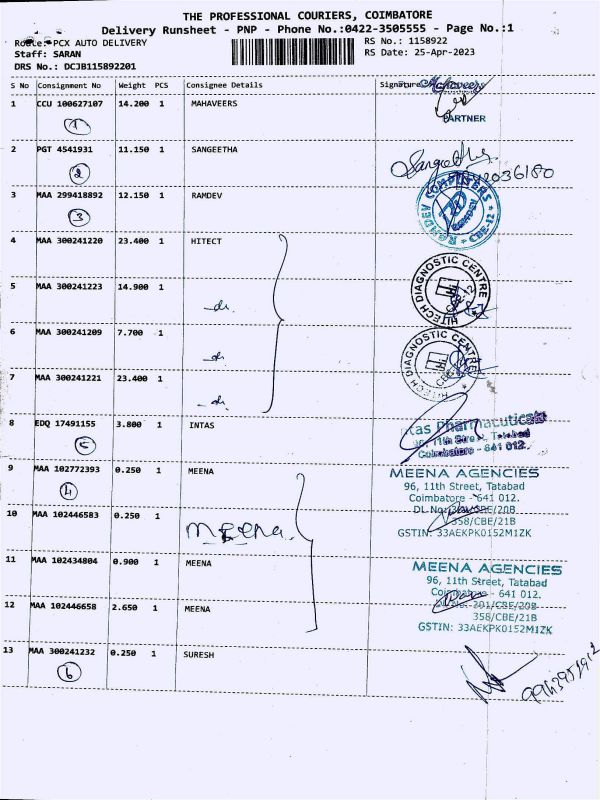 THE PROFESSIONAL COURIERS, COIMBATORE
Delivery Runsheet - PNP - Phone No.:0422-3505555 - Page No.:1
Route: PCX AUTO DELIVERY RS No.: 1158922
Staff: SARAN RS Date: 25-Apr-2023
DRS No.: DCJB115892201
S No Consignment No Weight PCS Consignee Details Signature Mahaveers
1 CCU 100627107 14.200 1 MAHAVEERS
PARTNER
1
2 PGT 4541931 11.150 1 SANGEETHA Sangeetha
2
3 MAA 299418892 12.150 1 RAMDEV RAMDEV COMPUTERS CBE-12
3
4 MAA 300241220 23.400 1 HITECT
5 MAA 300241223 14.900 1 HITECH DIAGNOSTIC CENTRE CBE-12
do
6 MAA 300241209 7.700 1
do
HITECH DIAGNOSTIC CENTRE
7 MAA 300241221 23.400 1
do
8 EDQ 17491155 3.800 1 INTAS tas Pharmaceuticals
11th Street, Tatabad
Coimbatore - 641 012.
9 MAA 102772393 0.250 1 MEENA MEENA AGENCIES
4
96, 11th Street, Tatabad
Coimbatore - 641 012.
10 MAA 102446583 0.250 1 MEENA
358/CBE/21B
GSTIN: 33AEKPK0152M1ZK
11 MAA 102434804 0.900 1 MEENA MEENA AGENCIES
96, 11th Street, Tatabad
Coimbatore - 641 012.
12 MAA 102446658 2.650 1 MEENA
358/CBE/21B
GSTIN: 33AEKPK0152M1ZK
13 MAA 300241232 0.250 1 SURESH
6